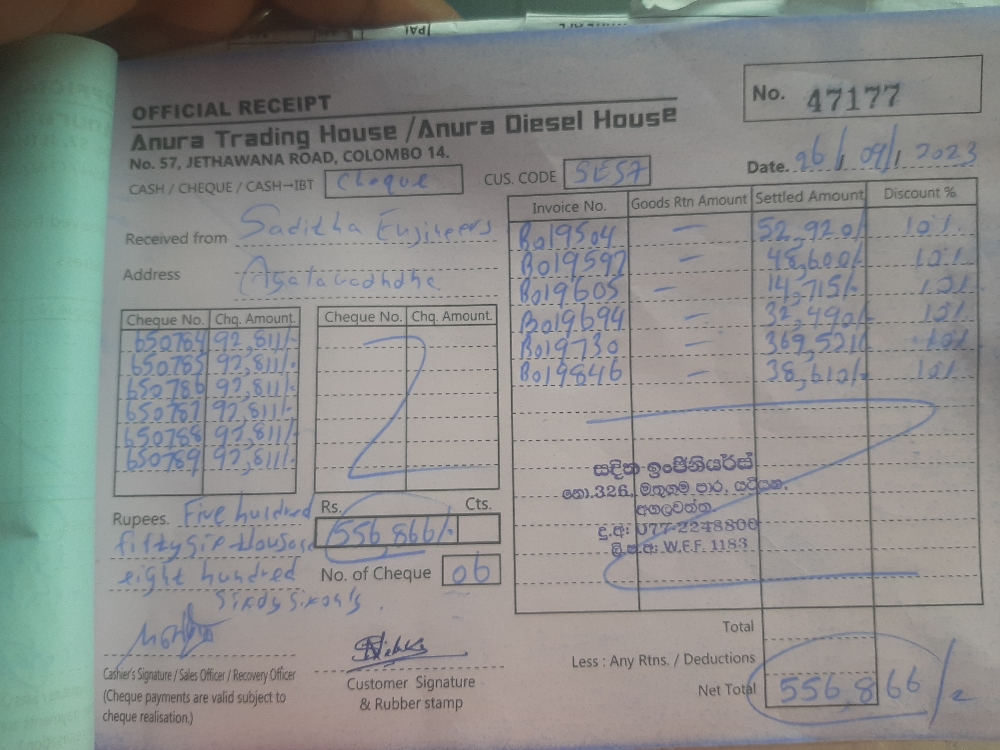 OFFICIAL RECEIPT
No. 47177
Anura Trading House /Anura Diesel House
No. 57, JETHAWANA ROAD, COLOMBO 14.
Date. 26/09/2023
CASH / CHEQUE / CASH→IBT Cheque CUS. CODE SES7
Received from Saditha Engineers
Address
Cheque No. Chq. Amount.
650784 92,811/-
650785 92,811/-
650786 92,811/-
650787 92,811/-
650788 92,811/-
650789 92,811/-
Cheque No. Chq. Amount.
Invoice No. Goods Rtn Amount Settled Amount Discount %
Bo19504 — 52,920/- 10%
Bo19597 — 48,600/- 10%
Bo19605 — 14,715/- 10%
Bo19694 — 32,490/- 10%
Bo19730 — 369,521/- 10%
Bo19846 — 38,610/- 10%
සදිත ඉංජිනියර්ස්
නො.326, මතුගම පාර, යටියන,
අගලවත්ත
දු.අ: 077-2248800
W.F.F. 1183
Rupees. Five hundred
fifty six thousand
eight hundred
Rs. Cts.
556,866/-
No. of Cheque 06
Total
Less : Any Rtns. / Deductions
Net Total 556,866/=
Cashier's Signature / Sales Officer / Recovery Officer
(Cheque payments are valid subject to
cheque realisation.)
Customer Signature
& Rubber stamp